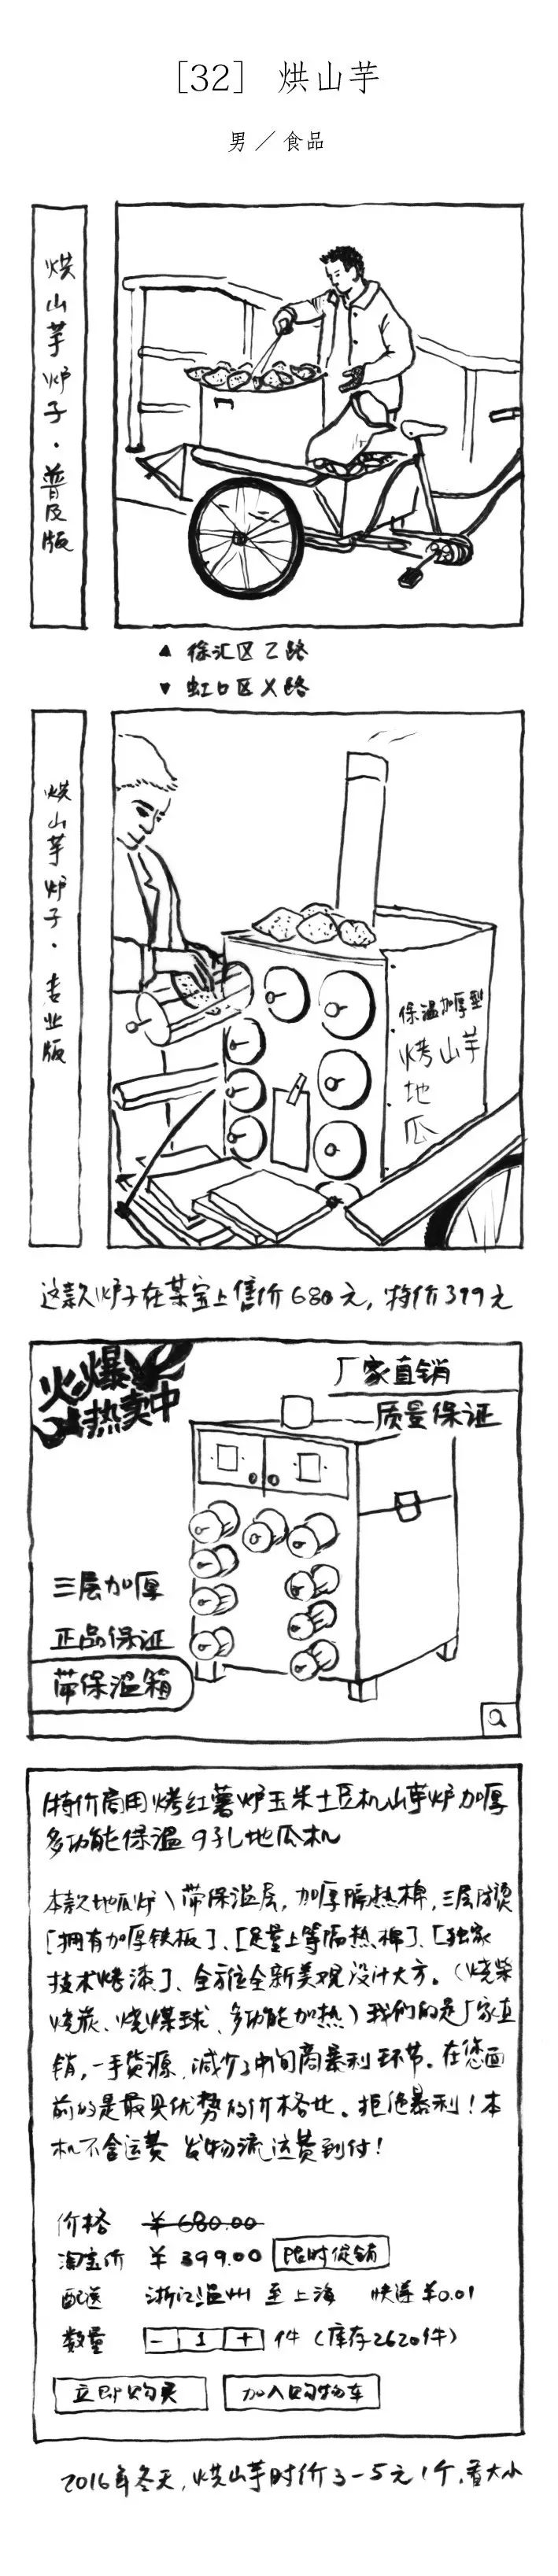 [32] 烘山芋
男／食品
烘山芋炉子·普及版
▲ 徐汇区Z路
▼ 虹口区X路
烘山芋炉子·专业版
保温加厚型
烤山芋
地
瓜
这款炉子在某宝上售价680元，特价399元
火爆
热卖中
厂家直销
质量保证
三层加厚
正品保证
带保温箱
特价商用烤红薯炉玉米土豆机山芋炉加厚
多功能保温9孔地瓜机
本款地瓜炉）带保温层，加厚隔热棉，三层防烫
[拥有加厚铁板]、[足量上等隔热棉]、[独家
技术烤漆]、全方位全新美观设计大方。（烧柴
烧炭、烧煤球、多功能加热）我们的是厂家直
销，一手货源，减少了中间商暴利环节。在您面
前的是最具优势的价格比。拒绝暴利！本
机不含运费 发物流运费到付！
价格 ¥680.00
淘宝价 ¥399.00 限时促销
配送 浙江温州 至 上海 快递¥0.01
数量 - 1 + 件（库存2620件）
立即购买 加入购物车
2016年冬天，烘山芋时价3-5元1个，看大小